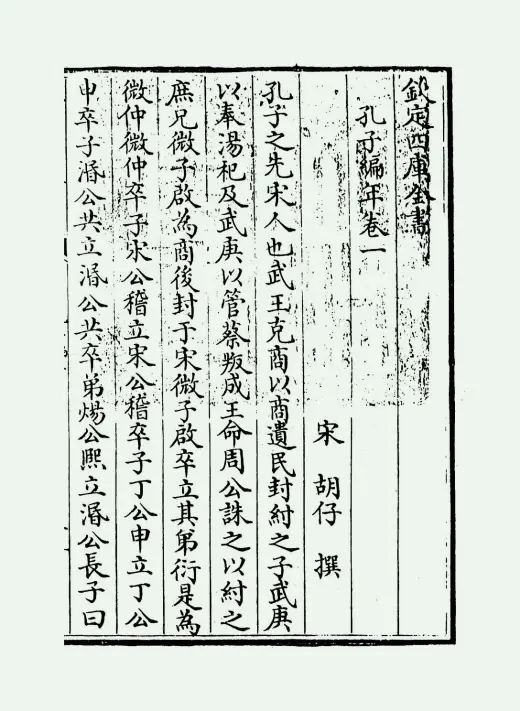 欽定四庫全書
孔子編年卷一
宋 胡仔 撰
孔子之先宋人也武王克商以商遺民封紂之子武庚
以奉湯祀及武庚以管蔡叛成王命周公誅之以紂之
庶兄微子啟為商後封于宋微子啟卒立其弟衍是為
微仲微仲卒子宋公稽立宋公稽卒子丁公申立丁公
申卒子湣公共立湣公共卒弟煬公熙立湣公長子曰